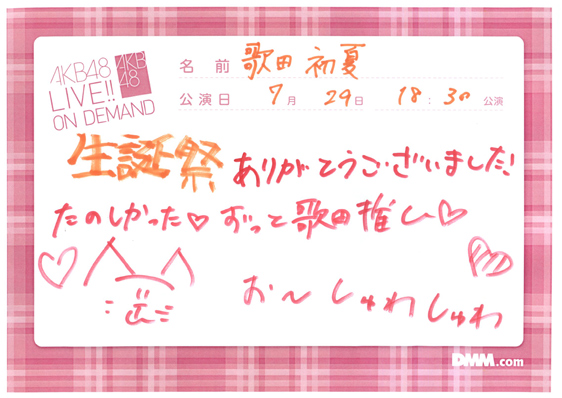 AKB48
LIVE!!
ON DEMAND
AKB
48
名 前 歌田 初夏
公演日 7月 29日 18:30 公演
生誕祭 ありがとうございました!
たのしかった♡ ずっと歌田推し♡
お〜しゅわしゅわ
DMM.com